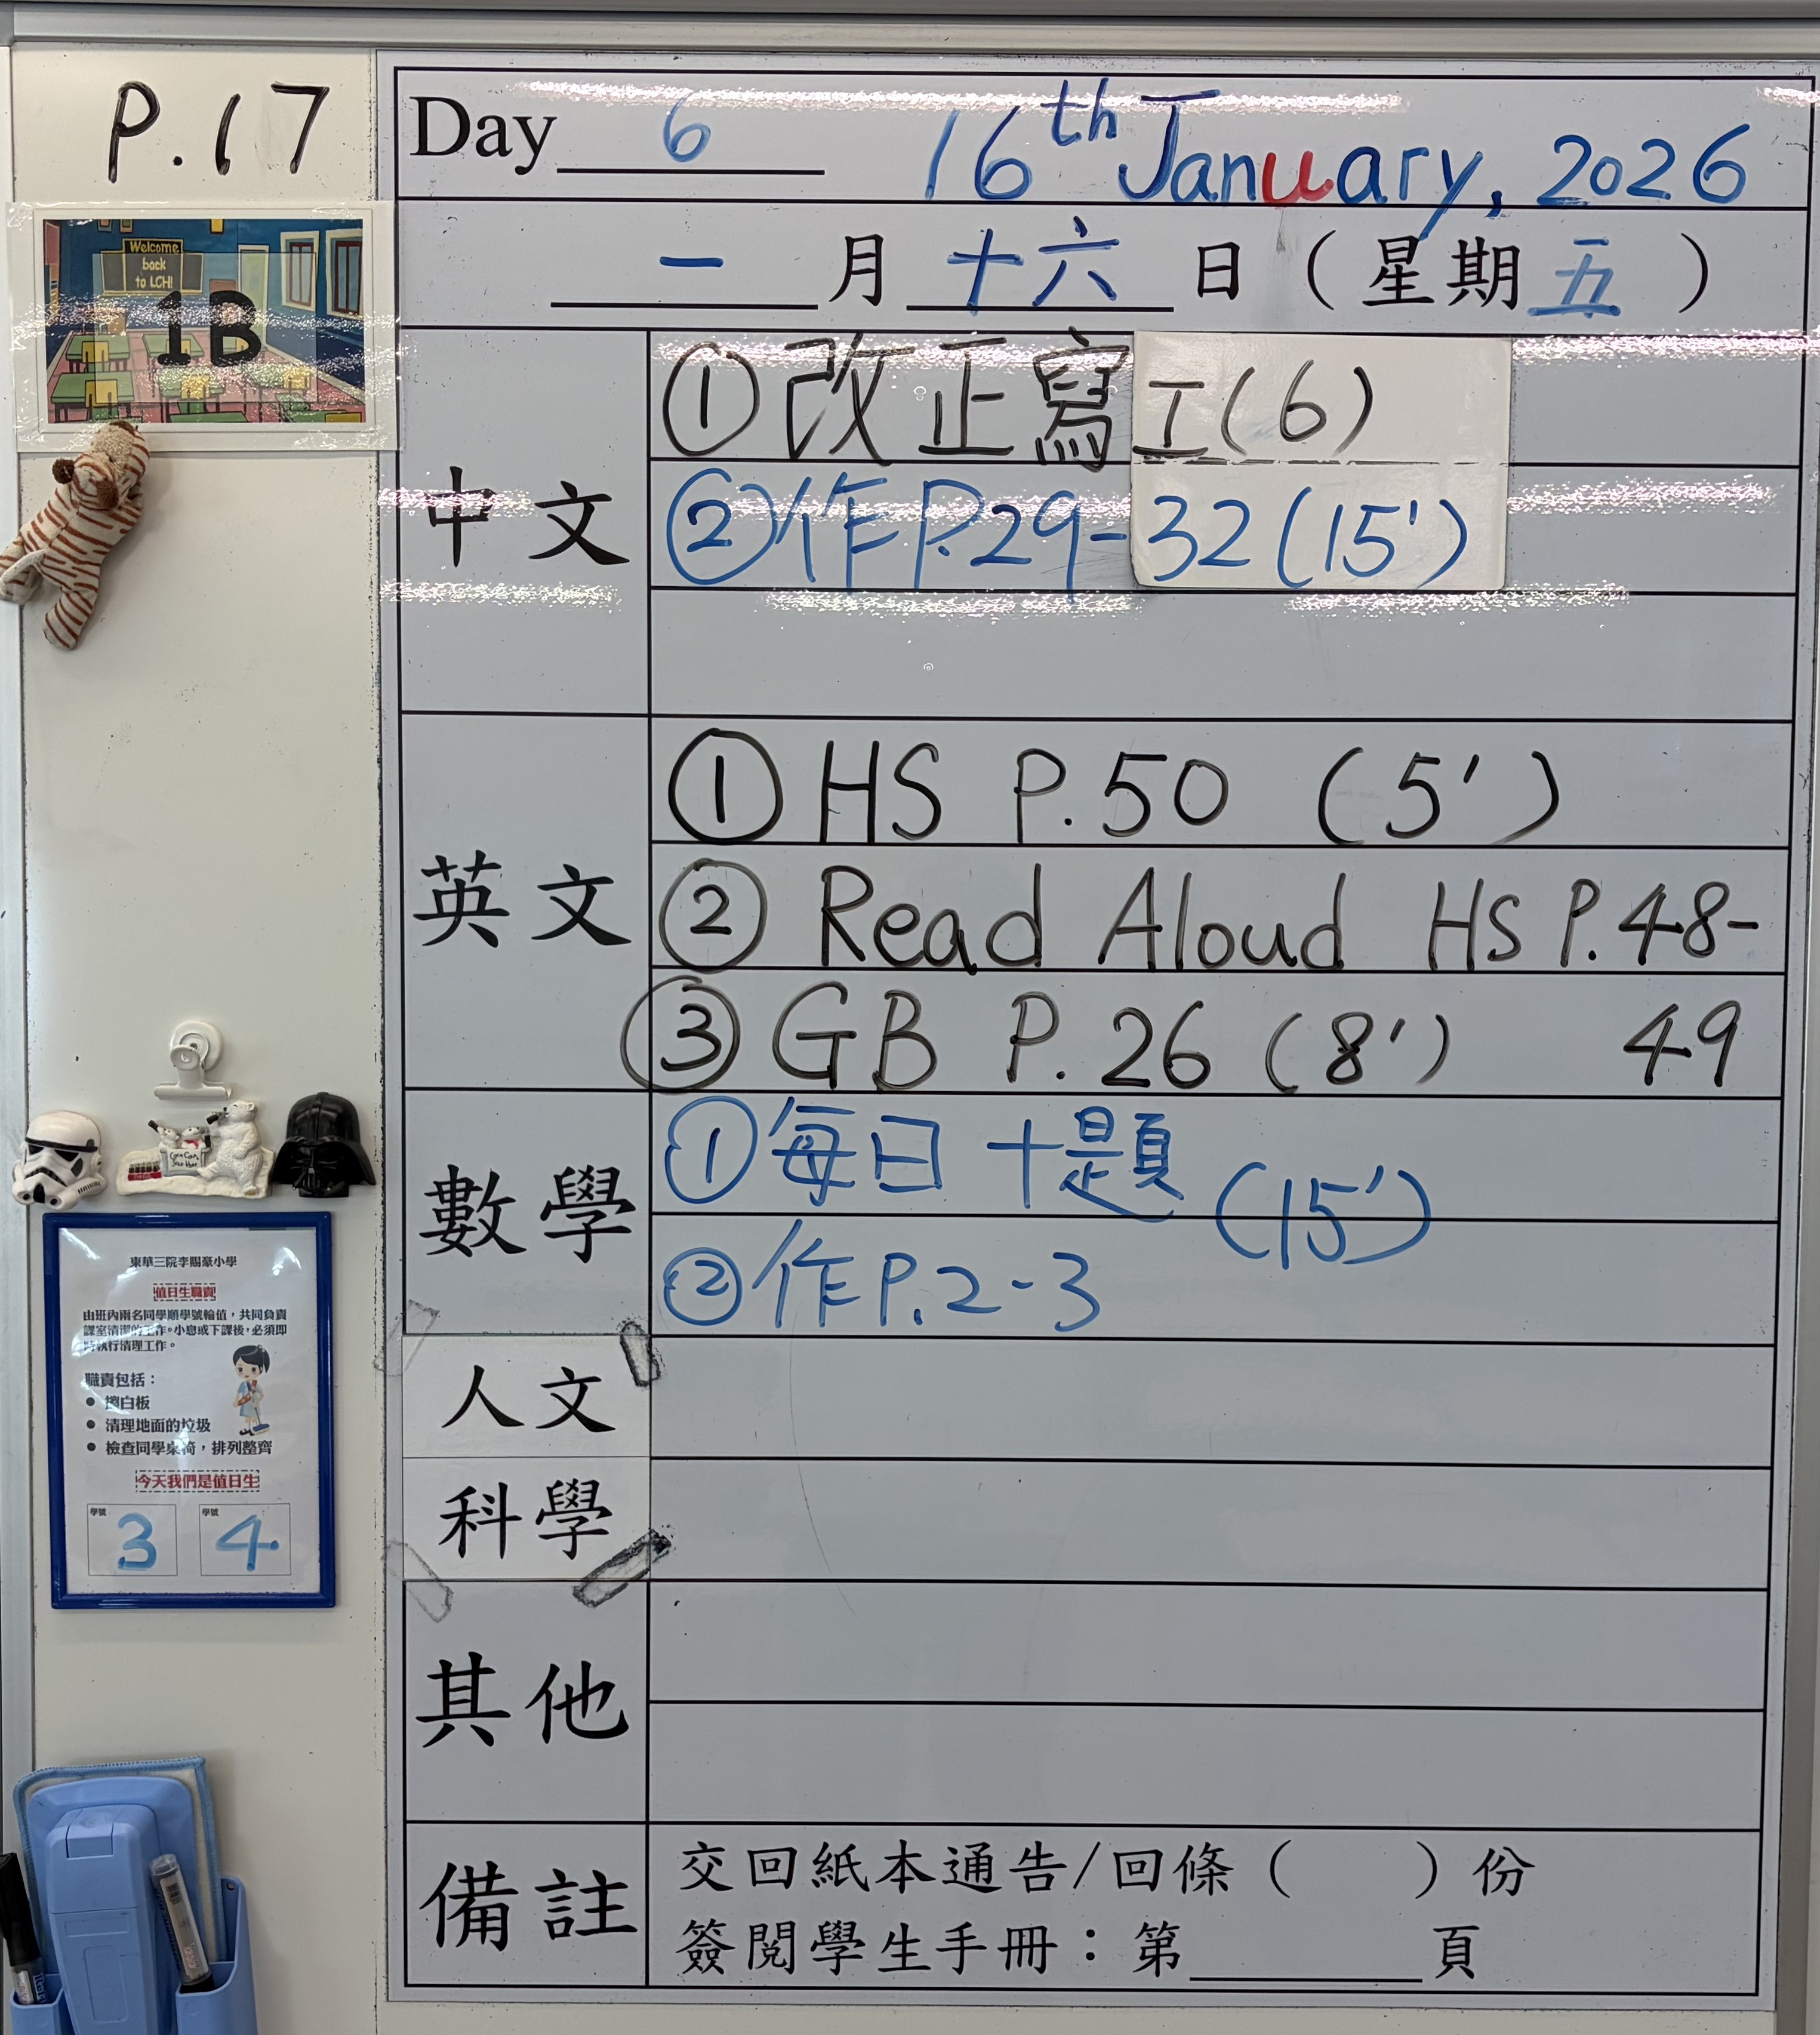 P.17
Welcome
back
to LCH!
1B
Day 6 16th January, 2026
一 月 十六 日 ( 星期 五 )
中文
① 改正寫工(6)
② 作P.29-32(15')
英文
① HS P.50 (5')
② Read Aloud HS P.48-
49
③ GB P.26 (8')
數學
① 每日十題
(15')
② 作P.2-3
人文
科學
其他
備註
交回紙本通告/回條 ( ) 份
簽閱學生手冊：第______頁
東華三院李賜豪小學
值日生職責
由班內兩名同學順學號輪值，共同負責
課室清潔的工作。小息或下課後，必須即
時執行清理工作。
職責包括：
● 擦白板
● 清理地面的垃圾
● 檢查同學桌椅，排列整齊
今天我們是值日生
學號 3
學號 4